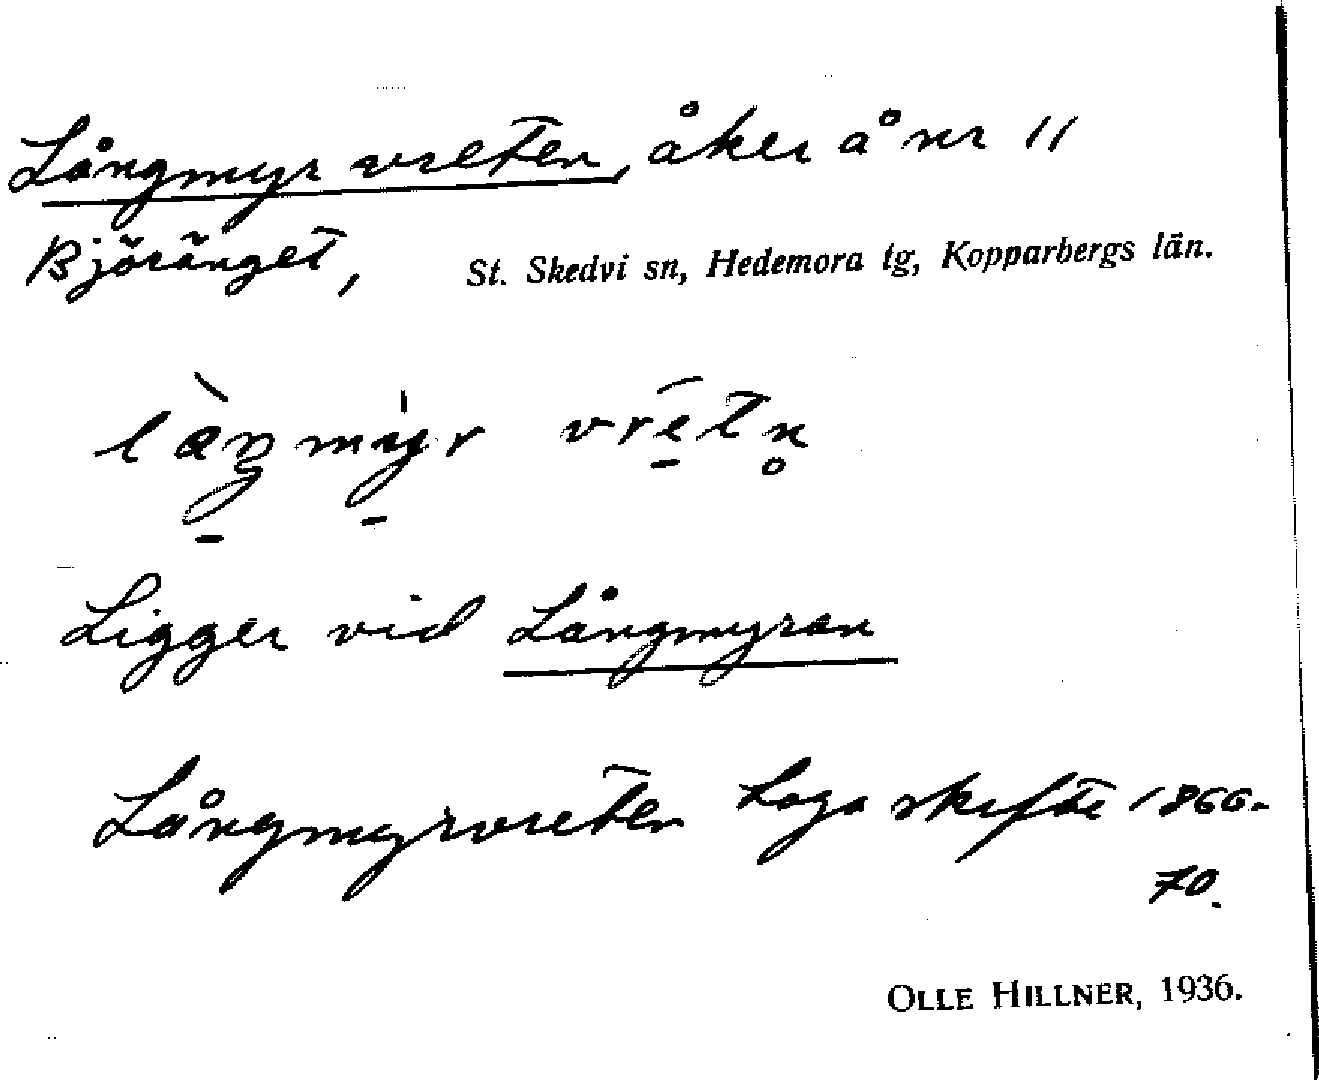 Långmyrvreten, åker å nr 11
Björänget, St. Skedvi sn, Hedemora tg, Kopparbergs län.
Ligger vid Långmyran
Långmyrvreten Laga skifte 1866-
70.
OLLE HILLNER, 1936.